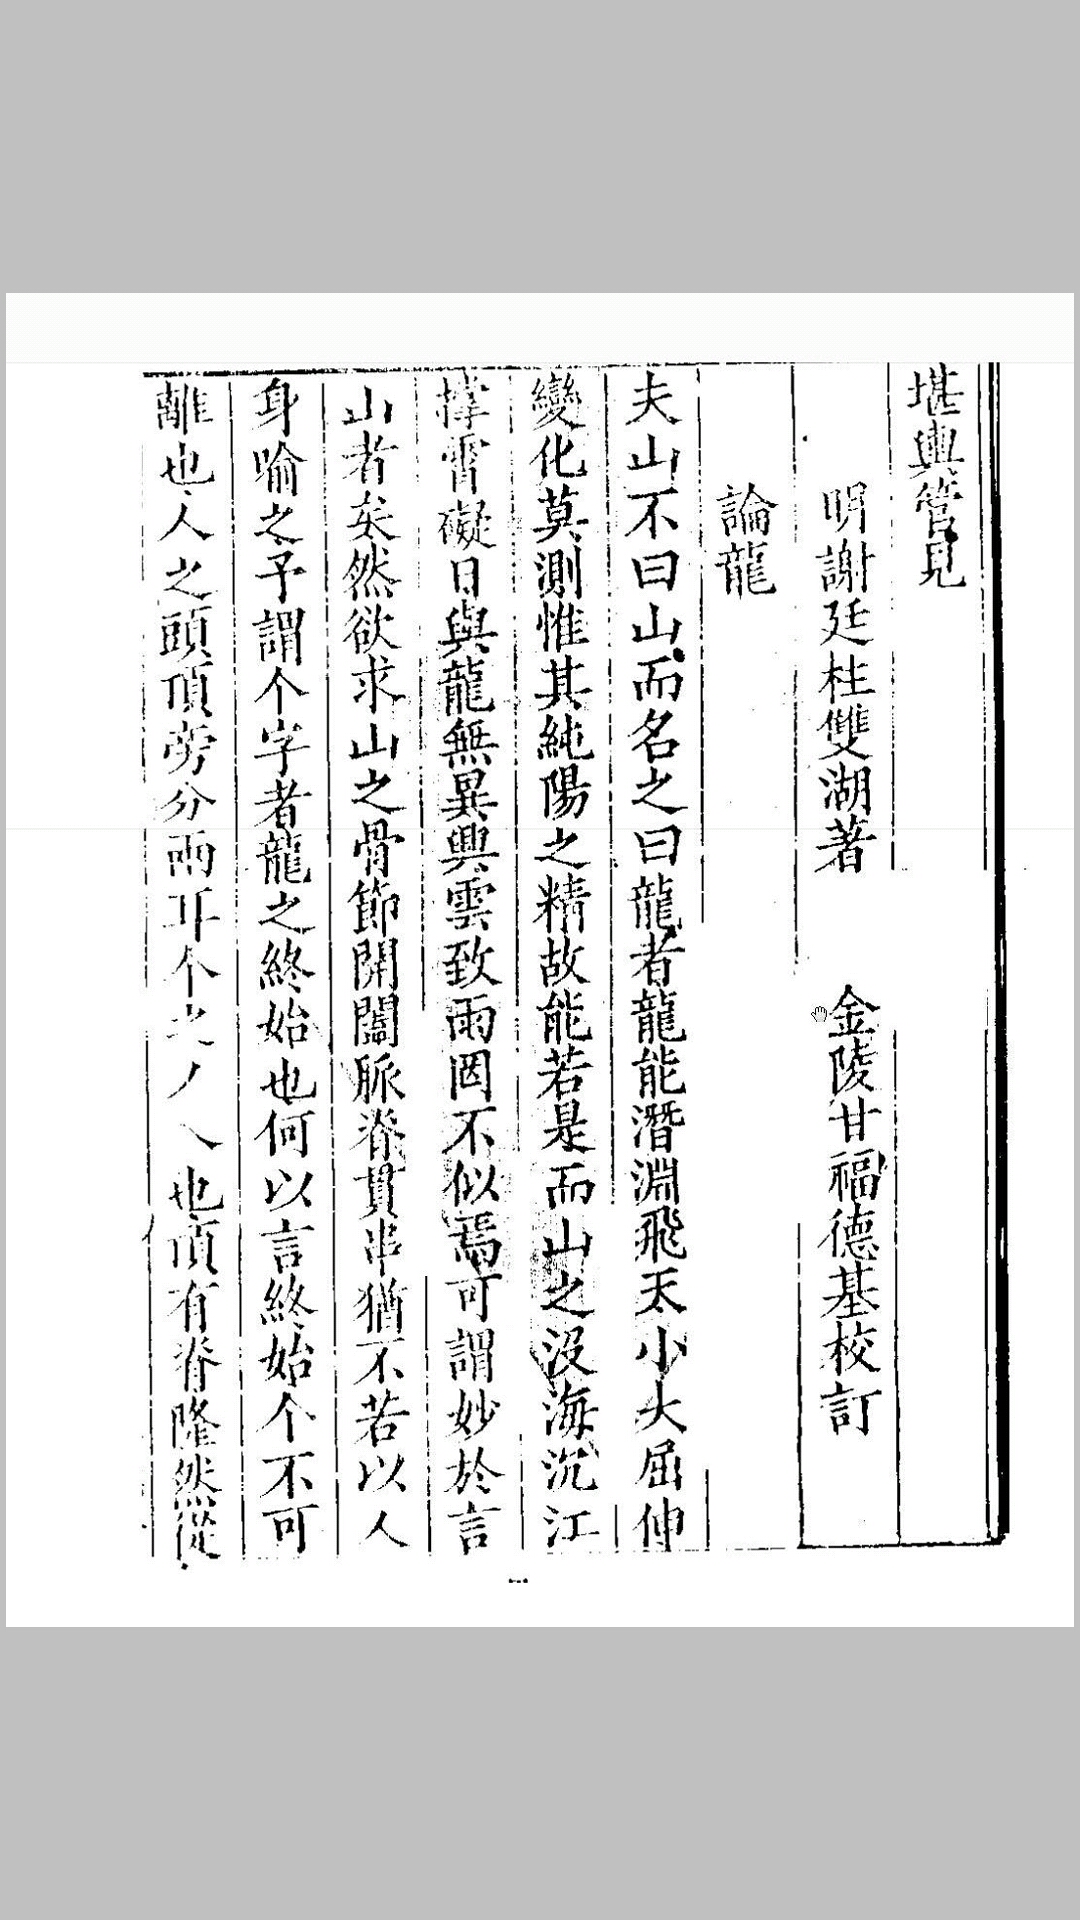 堪輿管見
明謝廷柱雙湖著　金陵甘福德基校訂
論龍
夫山不曰山而名之曰龍者龍能潛淵飛天小大屈伸
變化莫測惟其純陽之精故能若是而山之沒海沉江
撑霄礙日與龍無異興雲致雨罔不似焉可謂妙於言
山者矣然欲求山之骨節開闔脈脊貫串猶不若以人
身喻之予謂个字者龍之終始也何以言終始个不可
離也人之頭頂旁分兩耳个之丿乀也頂有脊隆然從